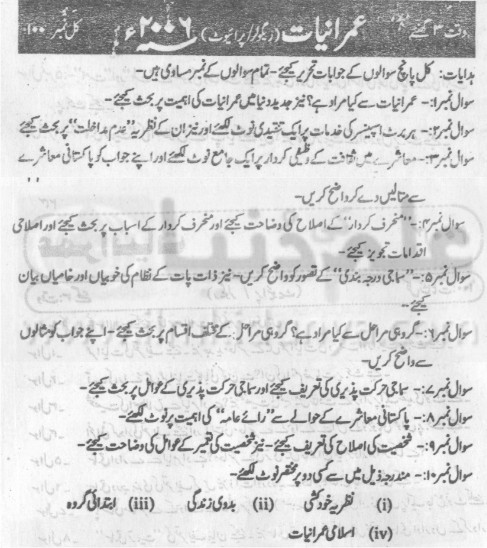 وقت ۳ گھنٹے عمرانیات (ریگولر/پرائیوٹ) سنہ ۲۰۰۶ء کل نمبر ۱۰۰
ہدایات: کل پانچ سوالوں کے جوابات تحریر کیجئے۔ تمام سوالوں کے نمبر مساوی ہیں۔
سوال نمبر۱:۔ عمرانیات سے کیا مراد ہے؟ نیز جدید دنیا میں عمرانیات کی اہمیت پر بحث کیجئے۔
سوال نمبر۲:۔ ہربرٹ اسپینسر کی خدمات پر ایک تنقیدی نوٹ لکھئے اور نیز ان کے نظریہ "عدم مداخلت" پر بحث کیجئے
سوال نمبر۳:۔ معاشرے میں ثقافت کے وظیفی کردار پر ایک جامع نوٹ لکھئے اور اپنے جواب کو پاکستانی معاشرے
سے مثالیں دے کر واضح کریں۔
سوال نمبر۴:۔ "منحرف کردار" کے اصلاح کی وضاحت کیجئے اور منحرف کردار کے اسباب پر بحث کیجئے اور اصلاحی
اقدامات تجویز کیجئے۔
سوال نمبر۵:۔ "سماجی درجہ بندی" کے تصور کو واضح کریں۔ نیز ذات پات کے نظام کی خوبیاں اور خامیاں بیان
کیجئے۔
سوال نمبر۶:۔ گروہی مراحل سے کیا مراد ہے؟ گروہی مراحل کے مختلف اقسام پر بحث کیجئے۔ اپنے جواب کو مثالوں
سے واضح کریں۔
سوال نمبر۷:۔ سماجی حرکت پذیری کی تعریف کیجئے اور سماجی حرکت پذیری کے عوامل پر بحث کیجئے۔
سوال نمبر۸:۔ پاکستانی معاشرے کے حوالے سے "رائے عامہ" کی اہمیت پر نوٹ لکھئے۔
سوال نمبر۹:۔ شخصیت کی اصلاح کی تعریف کیجئے۔ نیز شخصیت کی تعمیر کے عوامل کی وضاحت کیجئے۔
سوال نمبر۱۰:۔ مندرجہ ذیل میں سے کسی دو پر مختصر نوٹ لکھئے۔
(i) نظریہ خودکشی (ii) بدوی زندگی (iii) ابتدائی گروہ
(iv) اسلامی عمرانیات